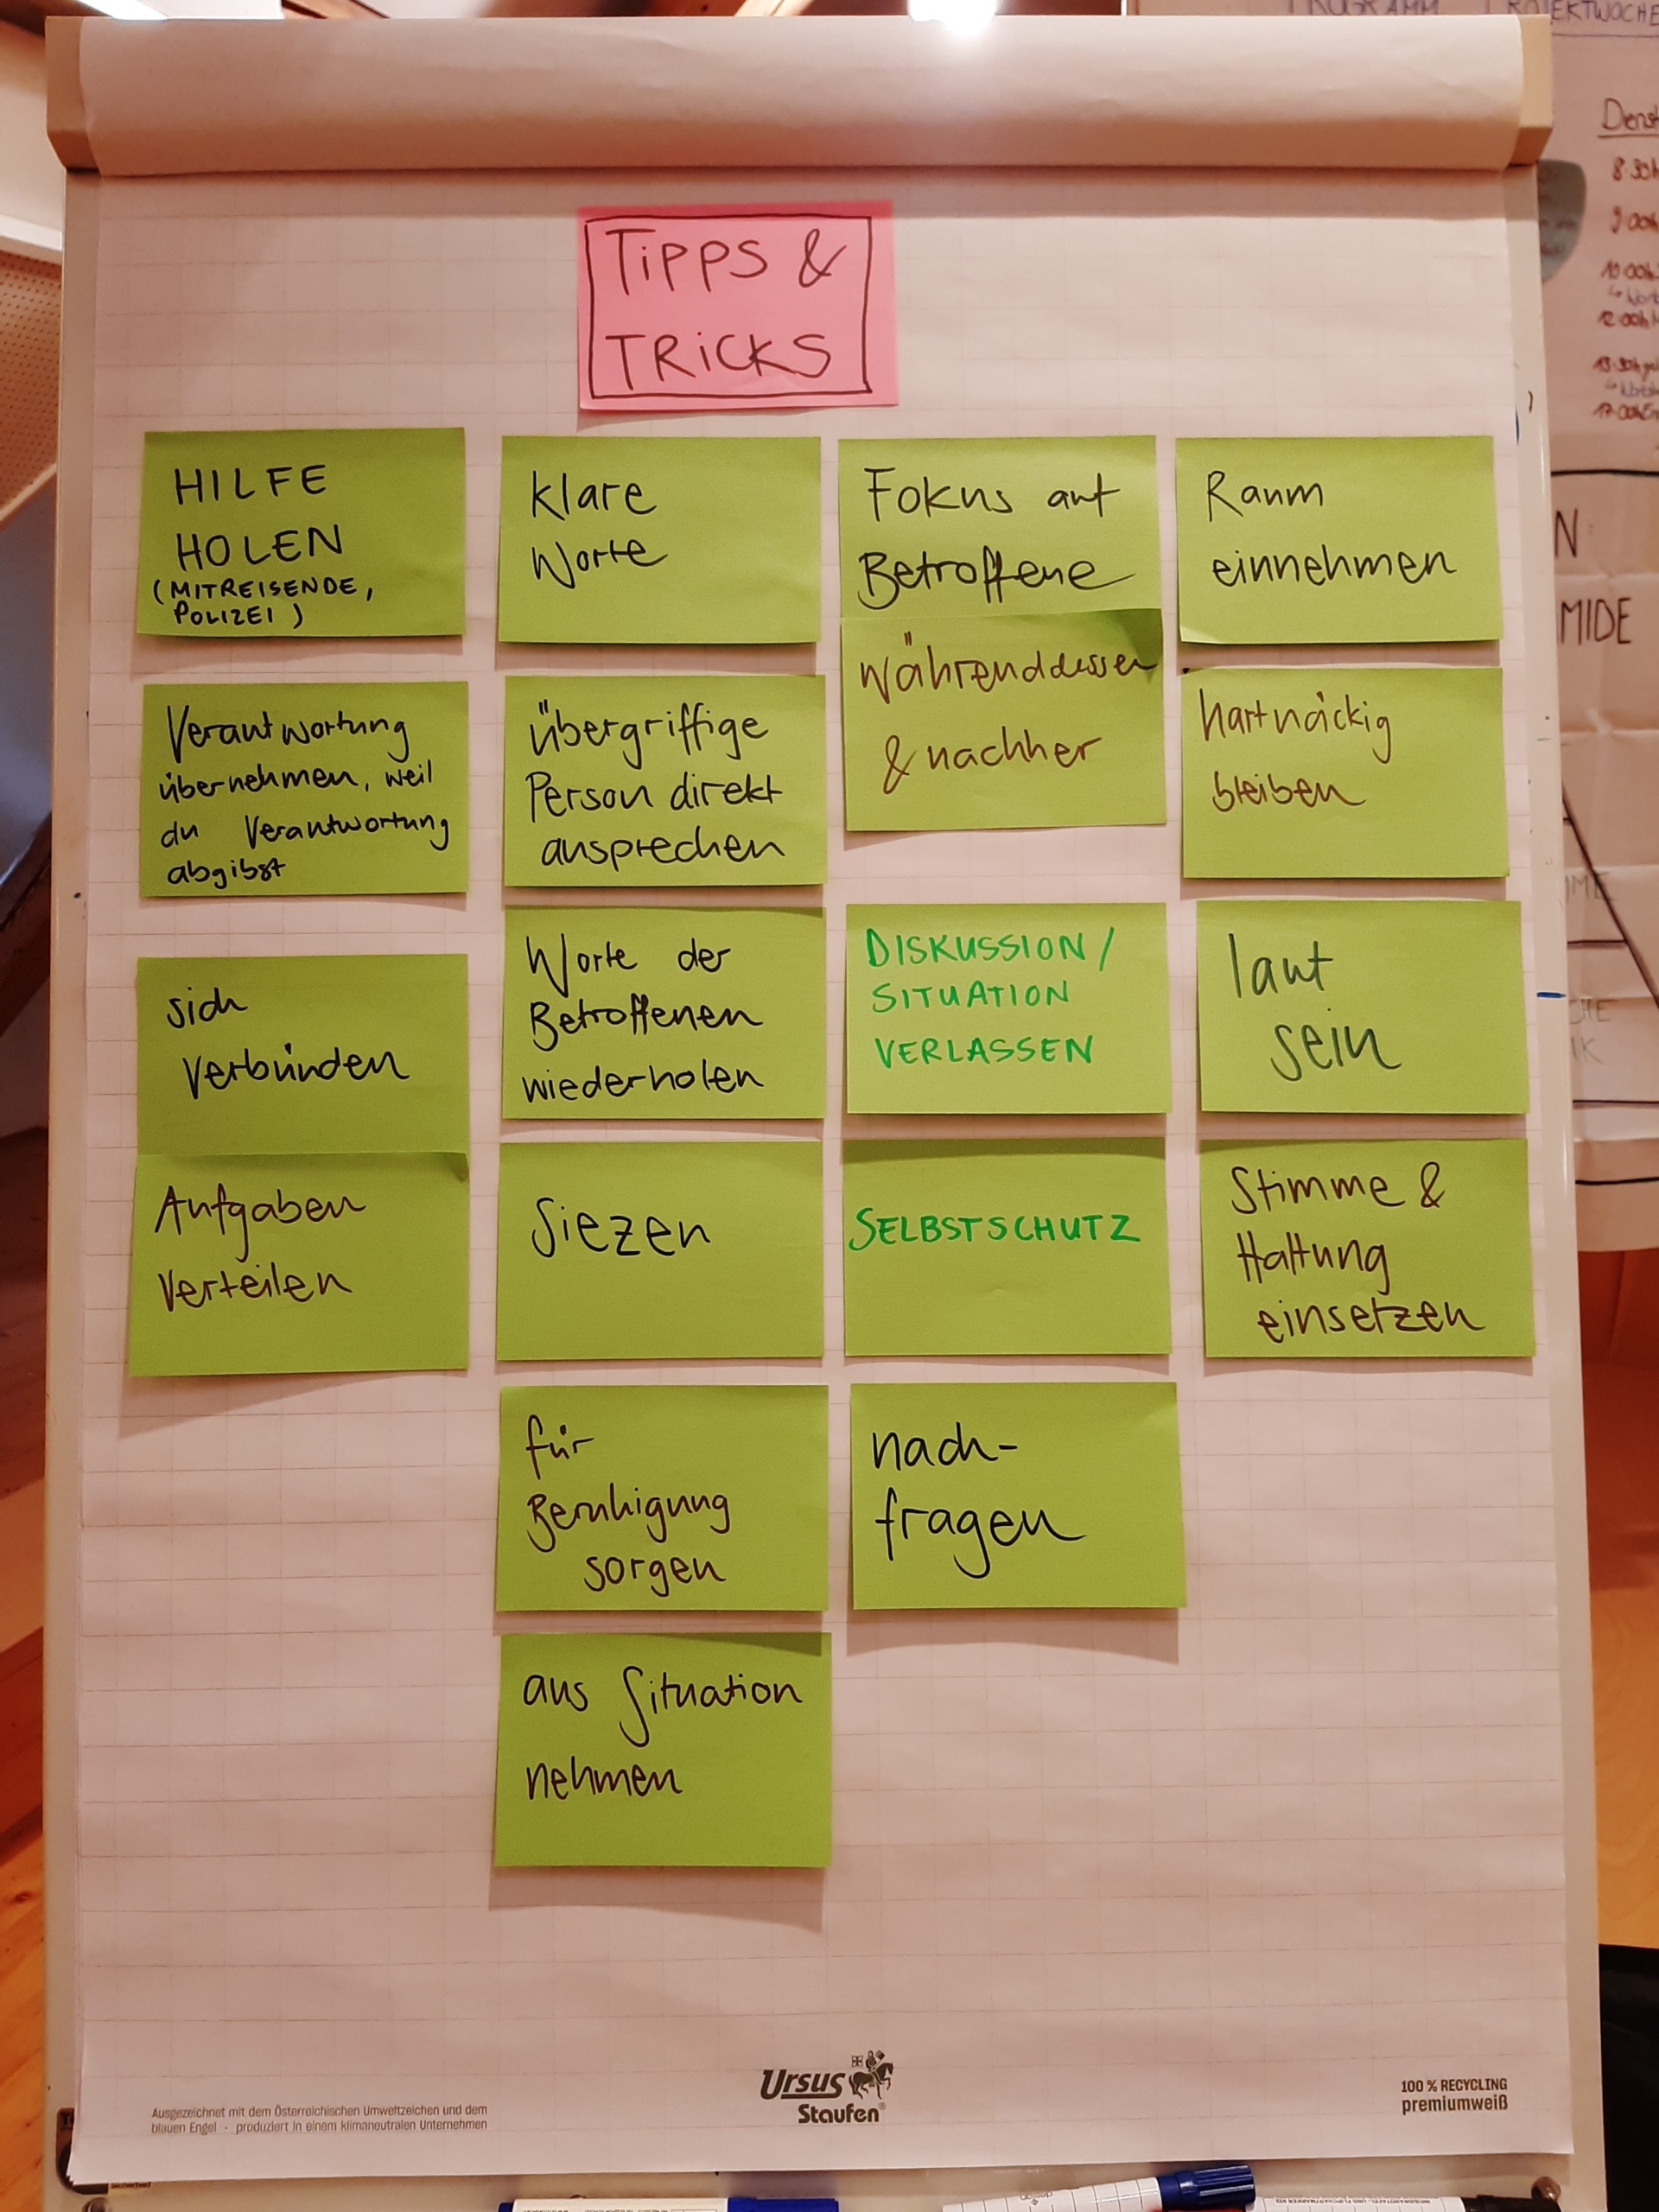 PROGRAMM PROJEKTWOCHE
TiPPS &
TRiCKS
HILFE
HOLEN
(MITREISENDE,
POLIZEI)
Verantwortung
übernehmen, weil
du Verantwortung
abgibst
sich
verbünden
Aufgaben
verteilen
klare
Worte
übergriffige
Person direkt
ansprechen
Worte der
Betroffenen
wiederholen
Siezen
für
Beruhigung
sorgen
aus Situation
nehmen
Fokus auf
Betroffene
währenddessen
& nachher
DISKUSSION/
SITUATION
VERLASSEN
SELBSTSCHUTZ
nach-
fragen
Raum
einnehmen
hartnäckig
bleiben
laut
sein
Stimme &
Haltung
einsetzen
8:30h
9:00h
10:00h
12:00h
MIDE
Ausgezeichnet mit dem Österreichischen Umweltzeichen und dem
blauen Engel - produziert in einem klimaneutralen Unternehmen
Ursus
Staufen®
100 % RECYCLING
premiumweiß